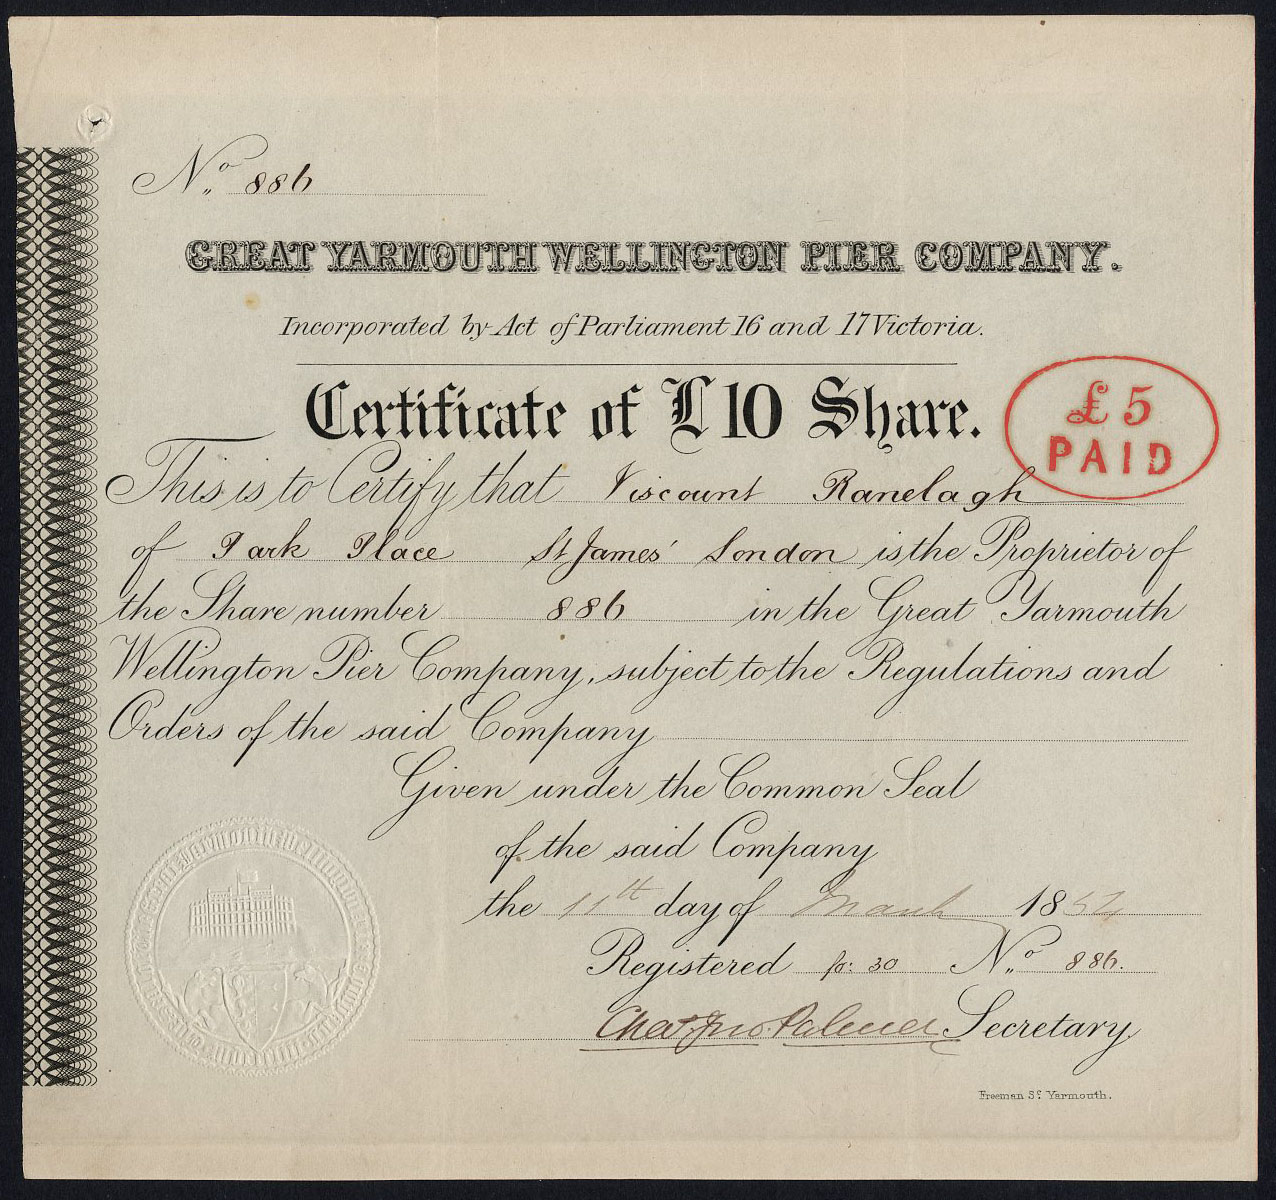 No. 886
GREAT YARMOUTH WELLINGTON PIER COMPANY.
Incorporated by Act of Parliament 16 and 17 Victoria.
Certificate of £10 Share.
£5
PAID
This is to Certify that Viscount Ranelagh
of Park Place St James' London is the Proprietor of
the Share number 886 in the Great Yarmouth
Wellington Pier Company, subject to the Regulations and
Orders of the said Company
Given under the Common Seal
of the said Company
the 11th day of March 1854
Registered fo: 30 No. 886.
Chas. Jno. Palmer Secretary
Freeman Sc. Yarmouth.